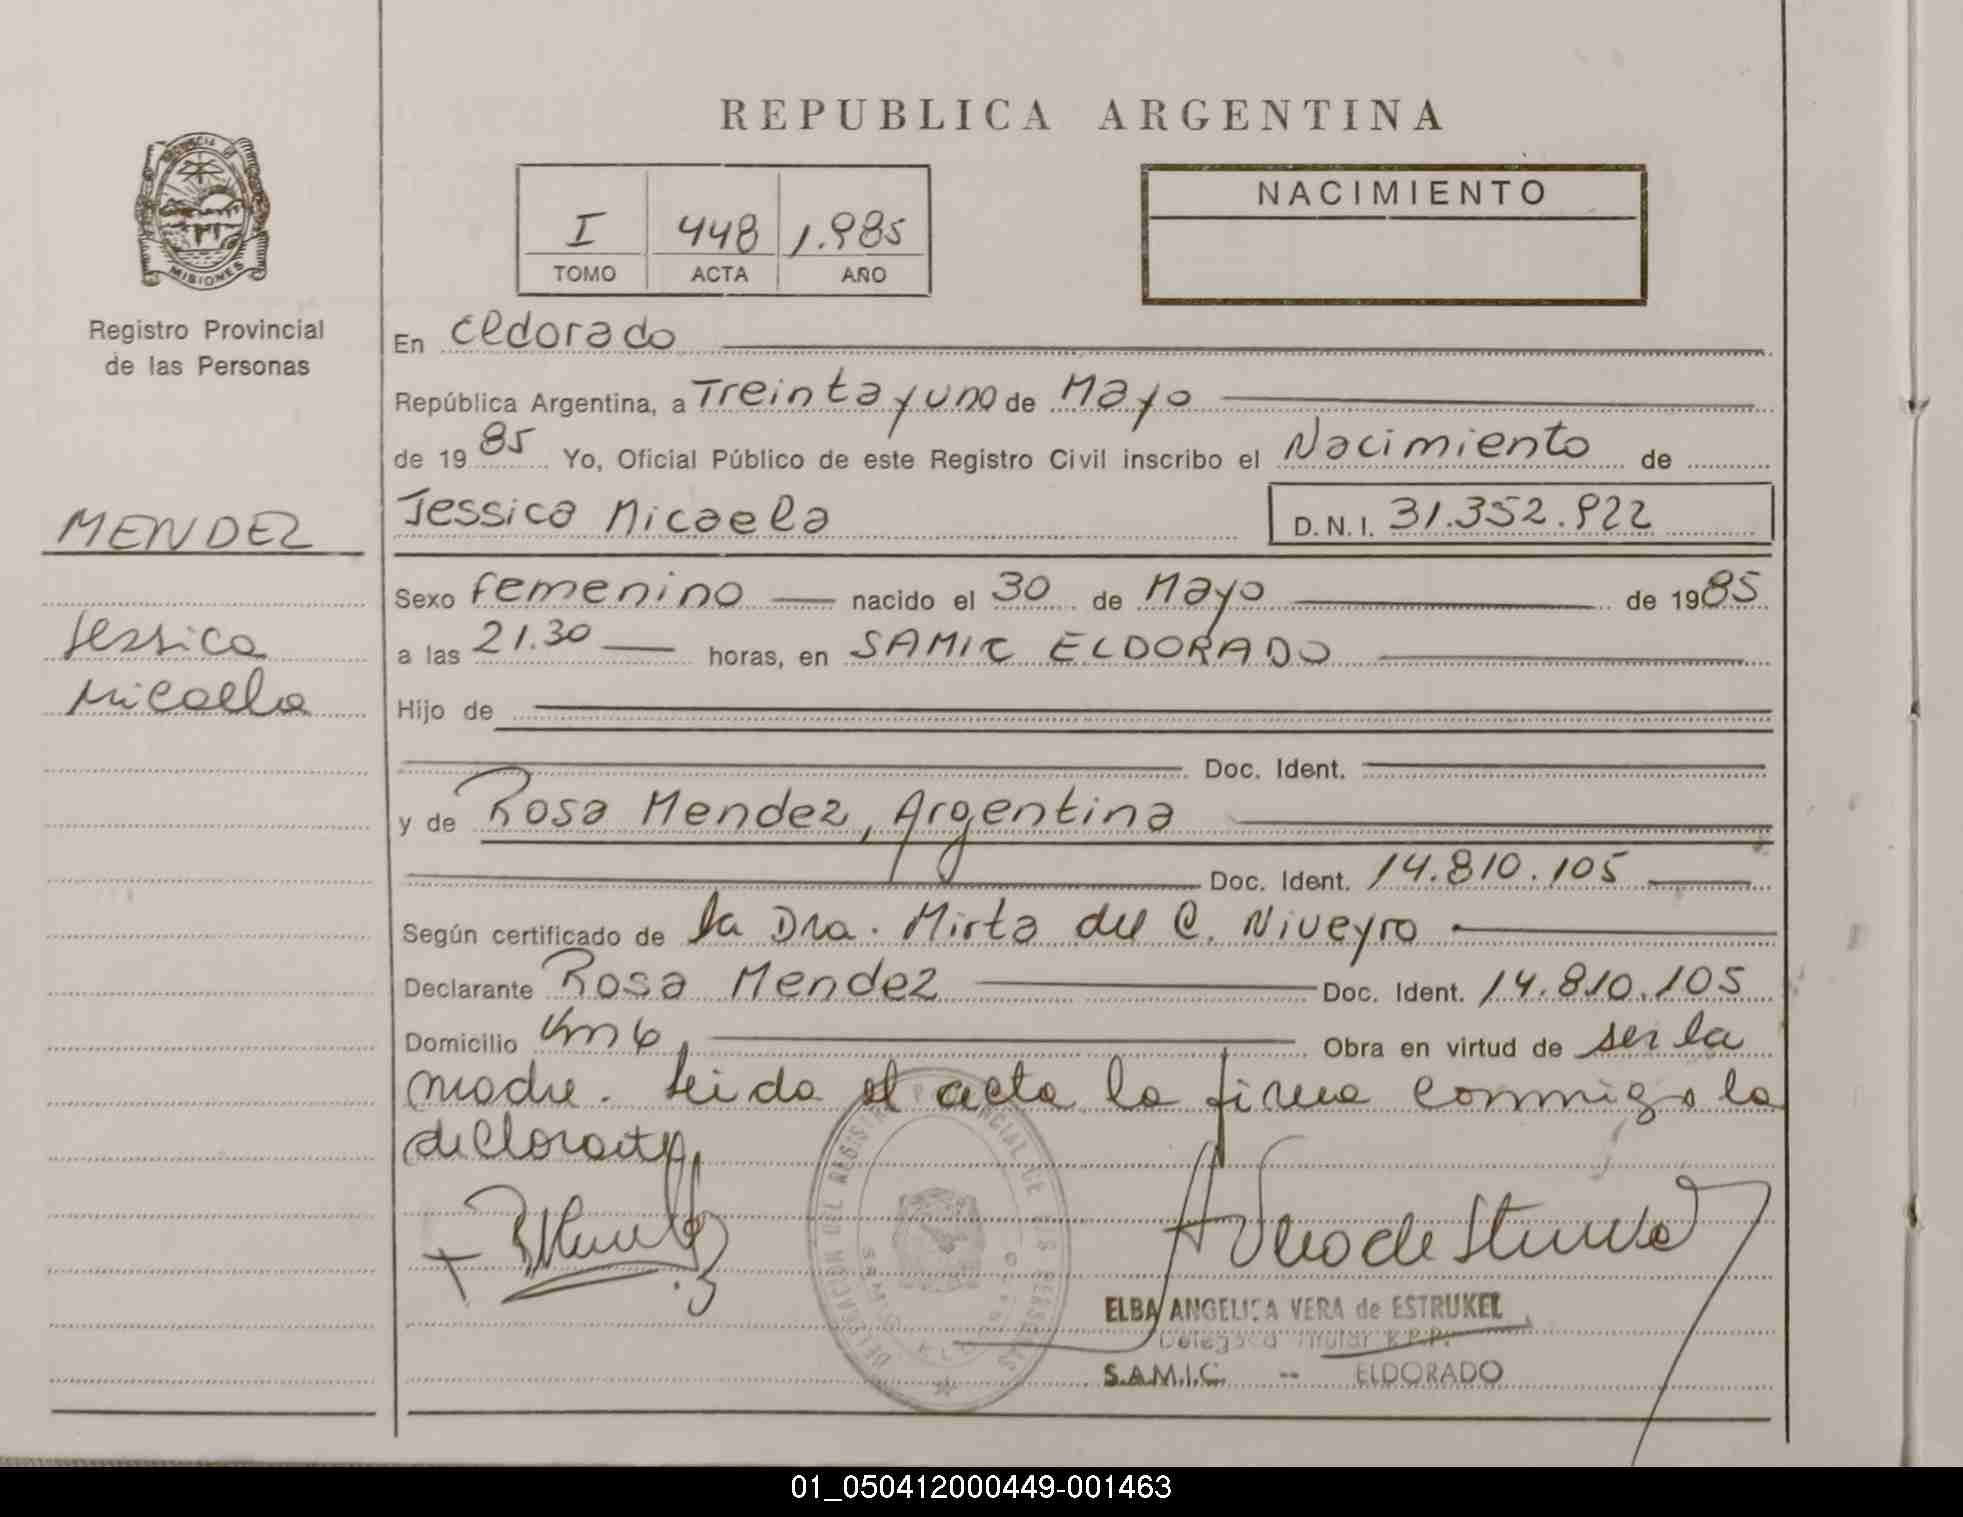 REPUBLICA ARGENTINA
PROVINCIA DE
MISIONES
Registro Provincial
de las Personas
I 448 1.985
TOMO ACTA AÑO
NACIMIENTO
En Eldorado
República Argentina, a Treinta y uno de Mayo
de 1985 Yo, Oficial Público de este Registro Civil inscribo el Nacimiento de
Jessica Micaela D.N.I. 31.352.922
MENDEZ
Jessica
Micaela
Sexo femenino nacido el 30 de Mayo de 1985
a las 21.30 horas, en SAMIC ELDORADO
Hijo de
Doc. Ident.
y de Rosa Mendez, Argentina
Doc. Ident. 14.810.105
Según certificado de la Dra. Mirta del C. Niveyro
Declarante Rosa Mendez Doc. Ident. 14.810.105
Domicilio Km 6 Obra en virtud de ser la
madre. Leido el acta la firma conmigo la
declarante
DELEGACION DEL REGISTRO PROVINCIAL DE LAS PERSONAS
ELBA ANGELICA VERA de ESTRUKEL
Delegada Titular R.P.P.
S.A.M.I.C. -- ELDORADO
01_050412000449-001463